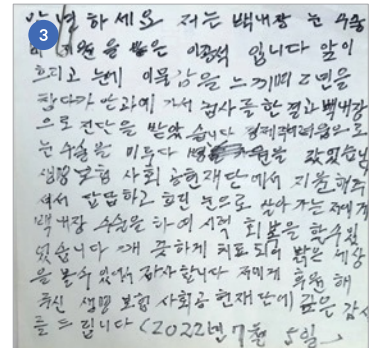 안녕하세요 저는 백내장 눈 수술
3
지원을 받은 이광석 입니다 앞이
흐리고 눈에 이물감을 느끼며 2년을
참다가 안과에 가서 검사를 한 결과 백내장
으로 진단을 받았습니다 경제적 어려움으로
는 수술을 미루다 병원을 갔었습니다
생명보험 사회 공헌재단에서 지원해주
셔서 답답하고 흐린 눈으로 살아가는 저에게
백내장 수술을 하여 시력 회복을 할수 있
었습니다 깨끗하게 치료되어 밝은 세상
을 볼수 있어서 감사합니다 저에게 후원해
주신 생명 보험 사회공헌재단에 깊은 감사
를 드립니다 (2022년 7월 5일